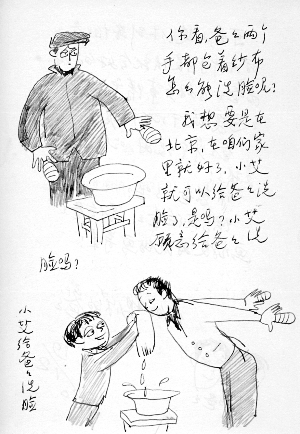 你看，爸爸两个
手都包着纱布
怎么能洗脸呢？
我想要是在
北京，在咱们家
里就好了，小艾
就可以给爸爸洗
脸了，是吗？小艾
愿意给爸爸洗
脸吗？
小艾给爸爸洗脸